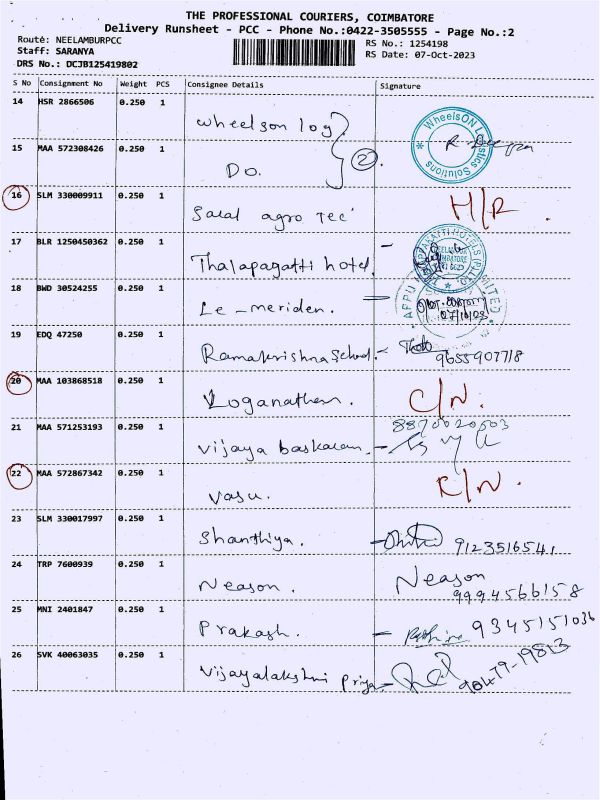 THE PROFESSIONAL COURIERS, COIMBATORE
Delivery Runsheet - PCC - Phone No.:0422-3505555 - Page No.:2
Route: NEELAMBURPCC
Staff: SARANYA
DRS No.: DCJB125419802
RS No.: 1254198
RS Date: 07-Oct-2023
S No Consignment No Weight PCS Consignee Details Signature
14 HSR 2866506 0.250 1 Wheelson log
WheelsON Logistics Solutions
15 MAA 572308426 0.250 1 Do. 2
16 SLM 330009911 0.250 1 agro Tec H/R.
17 BLR 1250450362 0.250 1 Thalapagatti hotel.
18 BWD 30524255 0.250 1 Le-meriden.
APPU HOTELS LIMITED
07/10/23
19 EDQ 47250 0.250 1 Ramakrishna School. - 9655907718
20 MAA 103868518 0.250 1 Loganathan. C/N.
21 MAA 571253193 0.250 1 Vijaya baskaran. - 8870020503
22 MAA 572867342 0.250 1 Vasu. R/N.
23 SLM 330017997 0.250 1 Shanthiya. 9123516541
24 TRP 7600939 0.250 1 Neason. Neason
9994566158
25 MNI 2401847 0.250 1 Prakash. - 9345151036
26 SVK 40063035 0.250 1 Vijayalakshmi Priya - 98479-19813